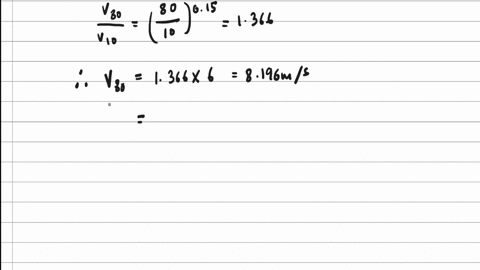 V80/V10 = (80/10)^0.15 = 1.366
∴ V80 = 1.366 x 6 = 8.196 m/s
=